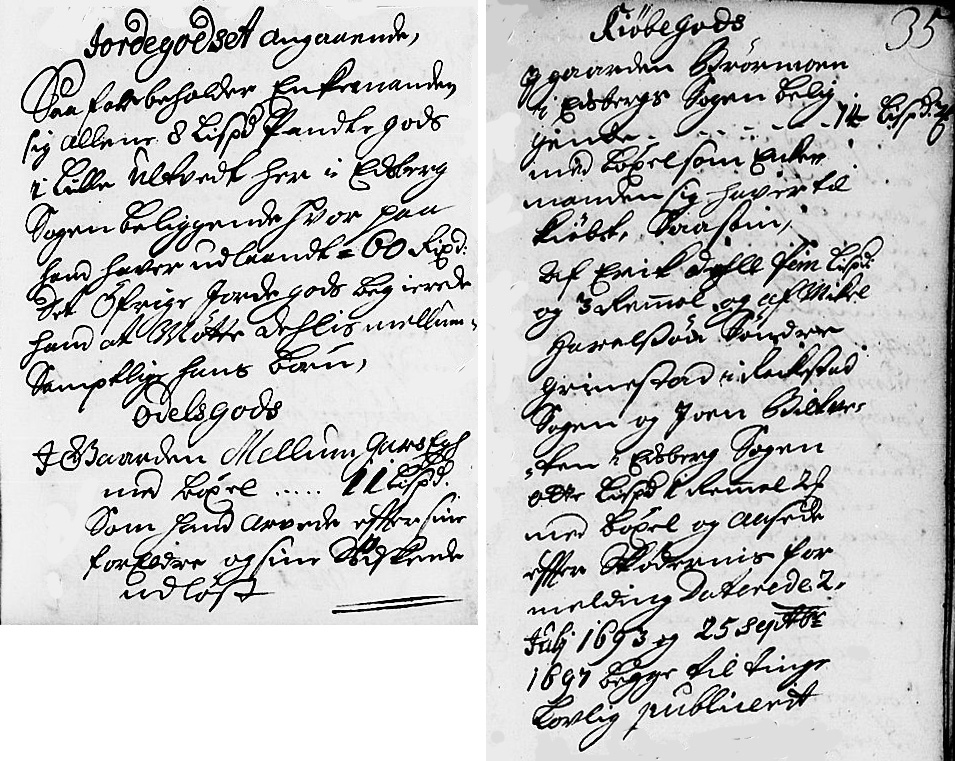 Jordegodset angaaende,
Saa forbeholder Enkemanden
sig allene 8 Lispd Pandte gods
i Lille Ultvedt her i Edsberg
Sogen beliggende hvor paa
hand haver udlaandt = 60 Rixd:
Det Öfrige Jorde gods begierede
hand at Møtte dehlis mellum
Samptlige hans børn,
Odelsgods
I Gaarden Mellum Garseg
med böxel ..... 11 Lispd.
Som hand arvede effter sine
forældre og sine Södskende
udløst
35
Kiöbegods
I gaarden Brörmoen
i Edsbergs Sogen belig
gende - - - - - - 14 Lispd:
med böxel som Enke
manden sig haver til
kiöbt, Saasom,
Af Erik Fim Lispd:
og 3 Remmel og af Mikel
Söndre
Grimestad i Rackestad
Sogen og Joen
i Edsberg Sogen
otte Lispd 1 Remmel
med böxel og Aasæde
effter Skiödernis for
melding Daterede 2.
Julij 1693 og 25 Septbr
1697 begge til tinge
Lovlig publicerit